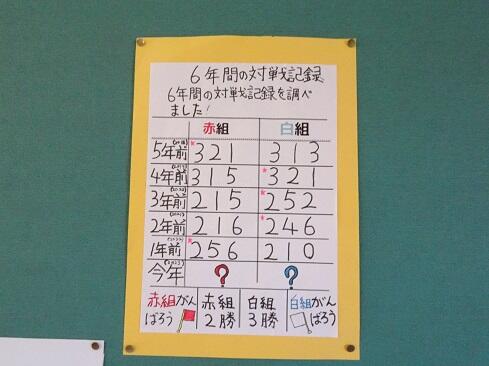 6年間の対戦記録
6年間の対戦記録を調べ
ました!
赤組 白組
5年前 *321 313
4年前 315 *321
3年前 215 *252
2年前 216 *246
1年前 *256 210
今年 ? ?
赤組がん
ばろう
赤組
2勝
白組
3勝
白組がん
ばろう